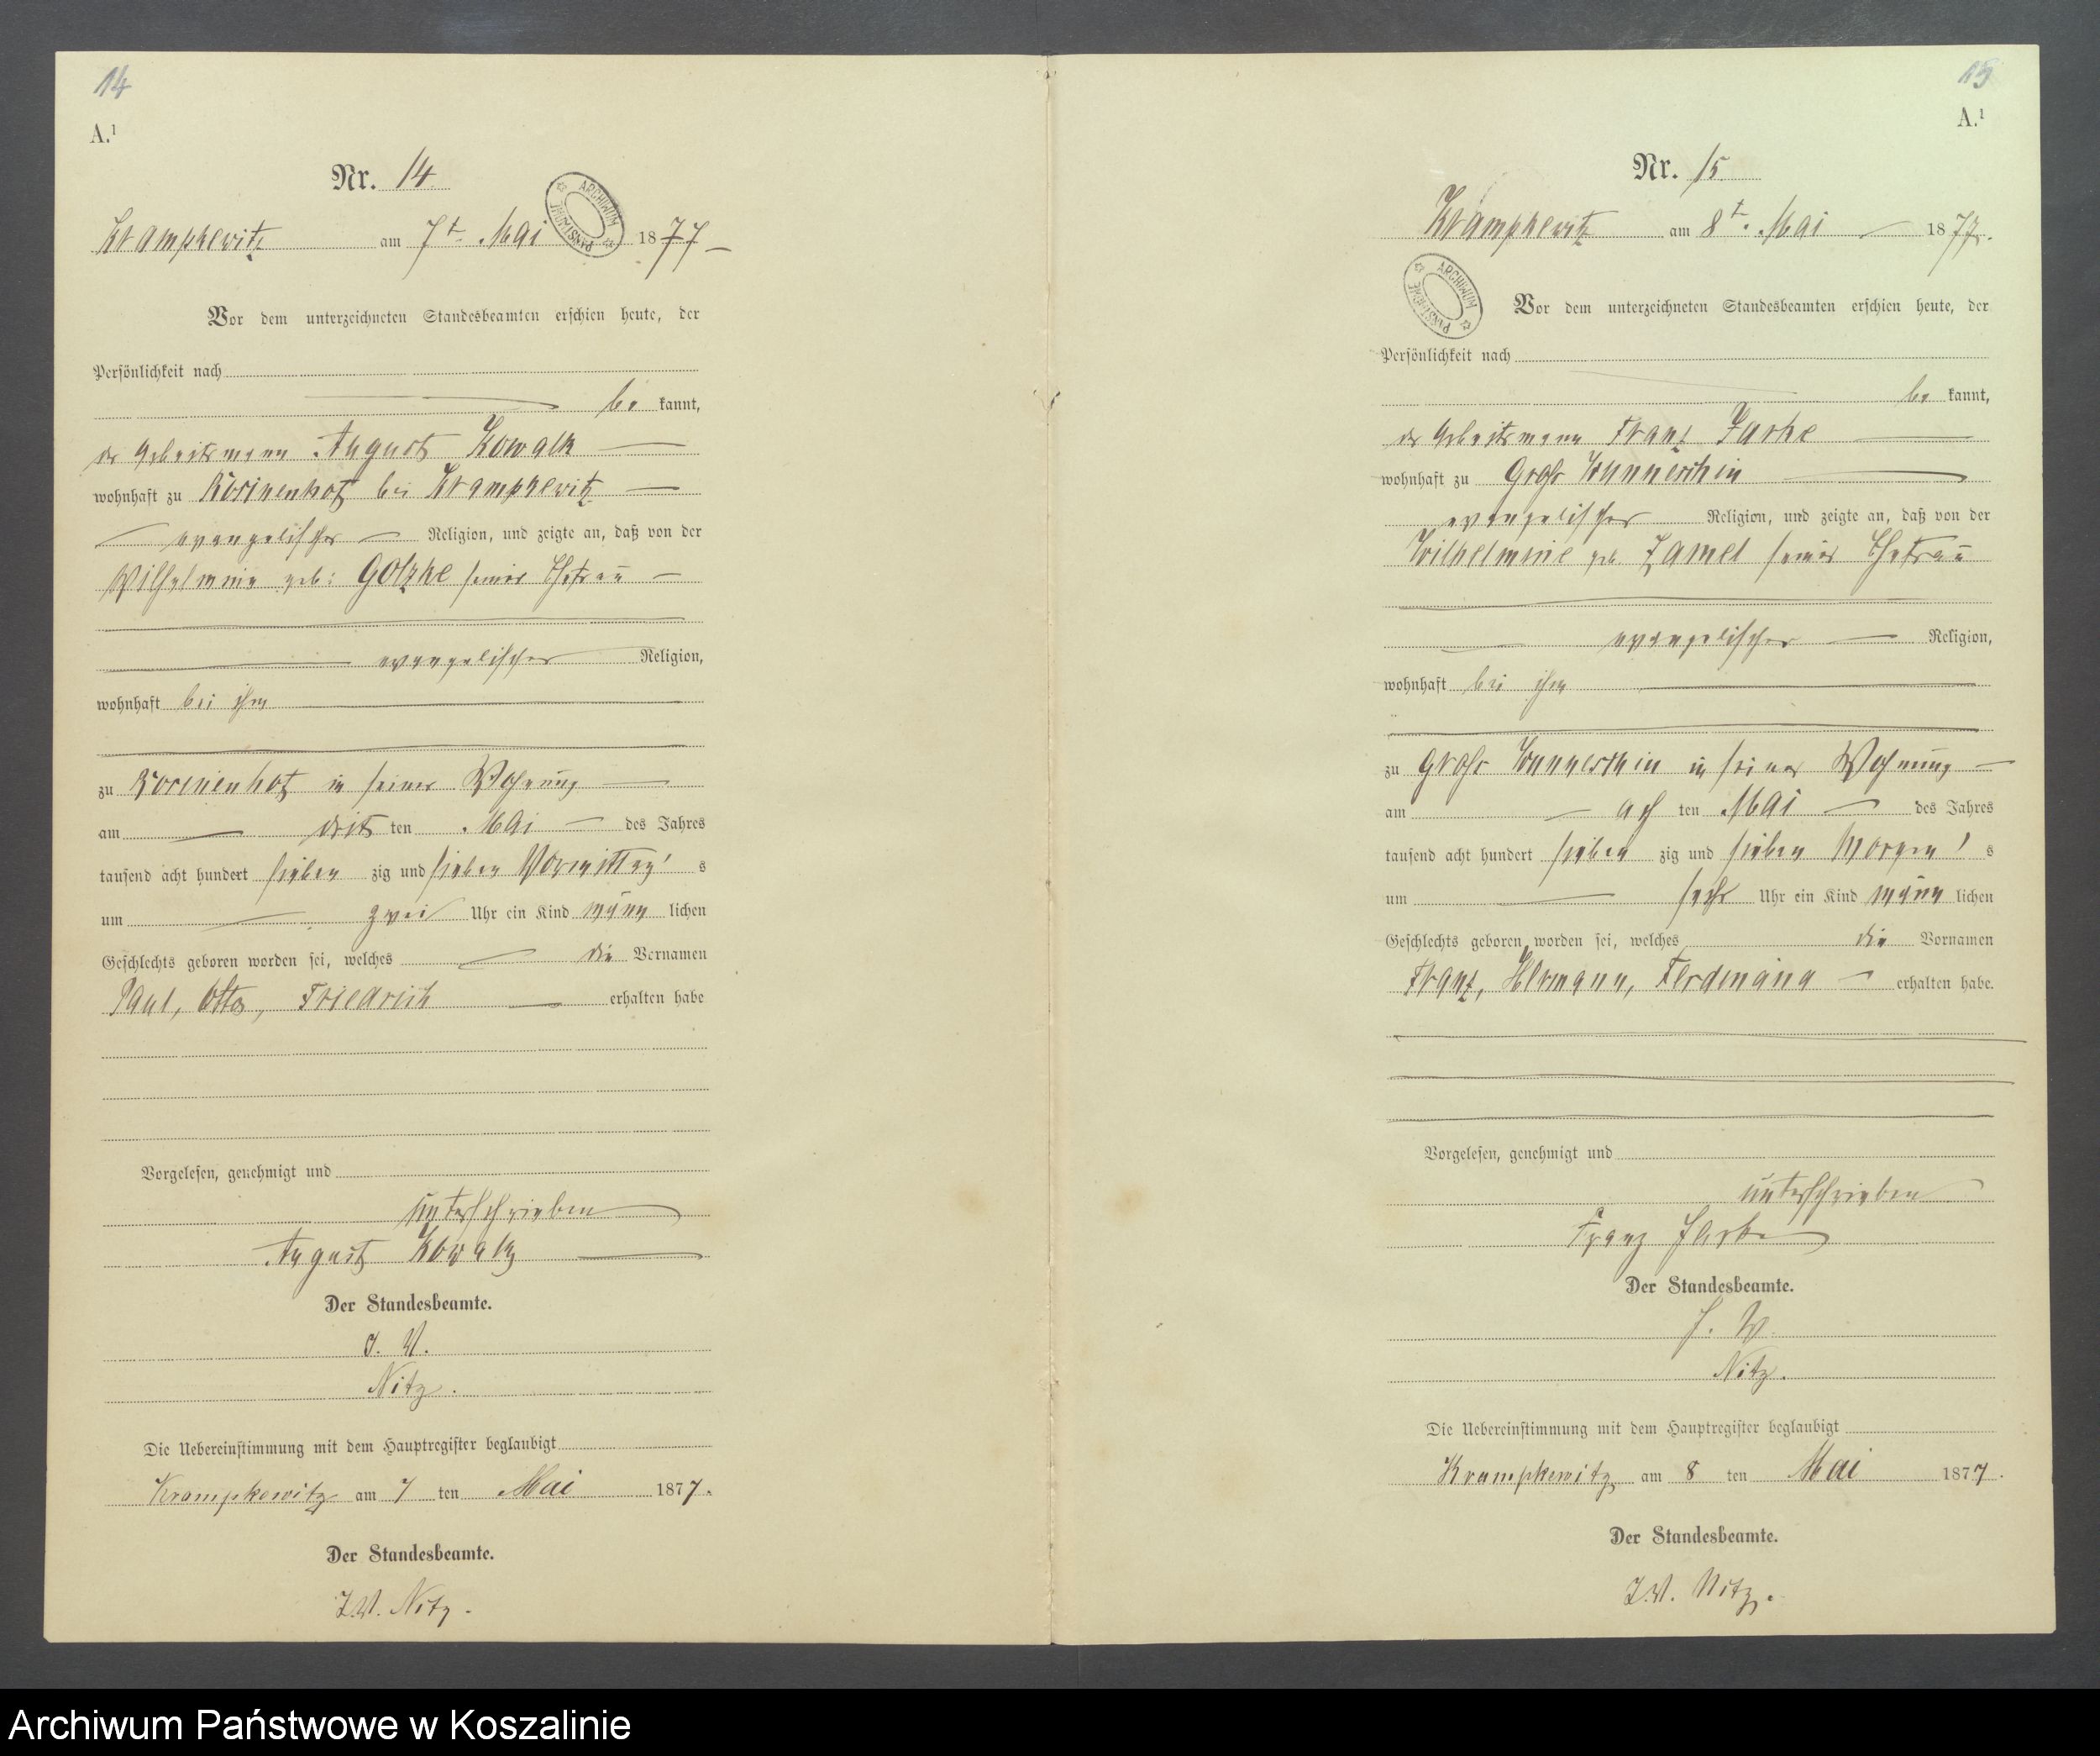 14
A.¹
Nr. 14.
ARCHIWUM PAŃSTWOWE
Krampkewitz am 7t. Mai 1877
Vor dem unterzeichneten Standesbeamten erschien heute, der
Persönlichkeit nach
be kannt,
der Arbeitsmann August Kowalk
wohnhaft zu bei Krampkewitz
evangelischer Religion, und zeigte an, daß von der
Wilhelmine geb: Golzke seiner Ehefrau
evangelischer Religion,
wohnhaft bei ihm
zu in seiner Wohnung
am drit ten Mai des Jahres
tausend acht hundert sieben zig und sieben Vormittag s
um zwei Uhr ein Kind männ lichen
Geschlechts geboren worden sei, welches die Vornamen
Paul, Otto, Friedrich erhalten habe
Vorgelesen, genehmigt und
unterschrieben
August Kowalk
Der Standesbeamte.
J. V.
Nitz.
Die Uebereinstimmung mit dem Hauptregister beglaubigt
Krampkewitz am 7 ten Mai 1877.
Der Standesbeamte.
J.V. Nitz.
15
A.¹
Nr. 15.
Krampkewitz am 8t. Mai 1877.
ARCHIWUM PAŃSTWOWE
Vor dem unterzeichneten Standesbeamten erschien heute, der
Persönlichkeit nach
be kannt,
der Arbeitsmann Franz Jarke
wohnhaft zu Groß Wunneschin
evangelischer Religion, und zeigte an, daß von der
Wilhelmine geb. Zamel seiner Ehefrau
evangelischer Religion,
wohnhaft bei ihm
zu Groß Wunneschin in seiner Wohnung
am ach ten Mai des Jahres
tausend acht hundert sieben zig und sieben Morgen s
um sechs Uhr ein Kind männ lichen
Geschlechts geboren worden sei, welches die Vornamen
Franz, Hermann, Ferdinand erhalten habe.
Vorgelesen, genehmigt und
unterschrieben
Franz Jarke
Der Standesbeamte.
J. V.
Nitz.
Die Uebereinstimmung mit dem Hauptregister beglaubigt
Krampkewitz am 8 ten Mai 1877.
Der Standesbeamte.
J.V. Nitz.
Archiwum Państwowe w Koszalinie